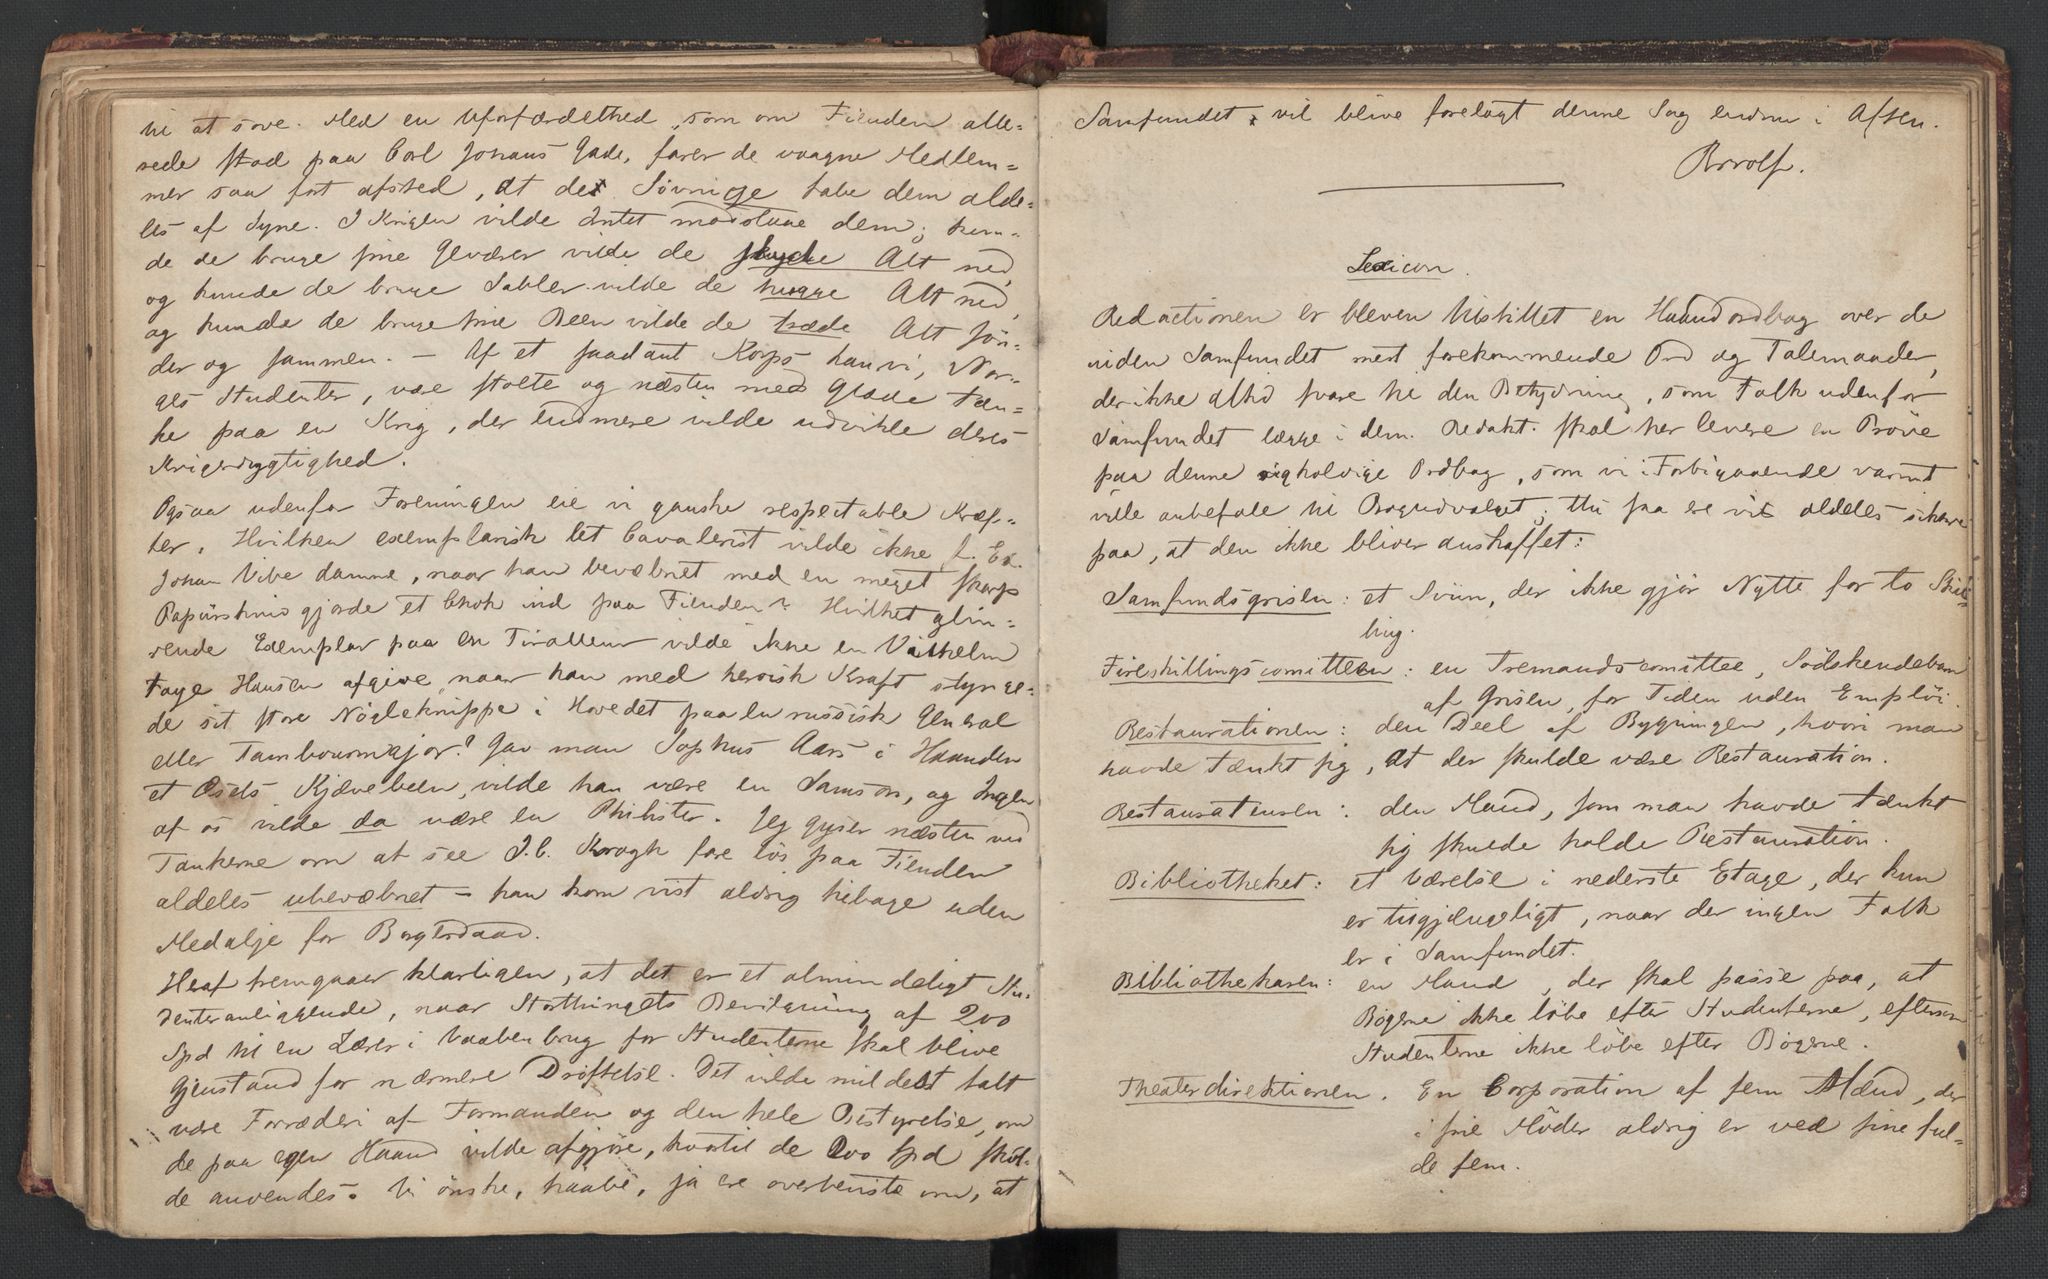 til at sove. Med en Uforfærdethed, som om Fienden alle-
rede stod paa Carl Johans Gade, farer de vaagne Medlem-
mer saa fort afsted, at de Søvnige tabe dem alde-
les af Syne. I Krigen vilde Intet modstaae dem; kun-
de de bruge sine Geværer vilde de skyde Alt ned,
og kunde de bruge Sabler vilde de hugge Alt ned,
og kunde de bruge sine Been vilde de træde Alt søn-
der og sammen. – Af et saadant Korps kan vi, Nor-
ges Studenter, være stolte og næsten med Glæde tæn-
ke paa en Krig, der endmere vilde udvikle deres
Krigerdygtighed.
Ogsaa udenfor Foreningen eie vi ganske respectable Kræf-
ter. Hvilken exemplarisk let Cavalerist vilde ikke f. Ex.
Johan Vibe danne, naar han bevæbnet med en meget skarp
Papirskniv gjorde et Chok ind paa Fienden? Hvilket glim-
rende Exemplar paa en Tirailleur vilde ikke en Vilhelm
Faye Hansen afgive, naar han med heroisk Kraft slynge-
de sit store Nøgleknippe i Hovedet paa en russisk General
eller Tambourmajor? Gav man Sophus Aars i Haanden
et Æsels Kjæveben, vilde han være en Samson, og Ingen
af os vilde da være en Philister. Jeg gyser næsten ved
Tankerne om at see J.C. Kragh fare løs paa Fienden
aldeles ubevæbnet – han kom vist aldrig tilbage uden
Medalje for Borgerdaad.
Heraf fremgaaer klarligen, at det er et almindeligt Stu-
denteranliggende, naar Storthingets Bevilgning af 200
Spd til en Lærer i Vaabenbrug for Studenterne skal blive
Gjenstand for nærmere Drøftelse. Det vilde mildest talt
være Forræderi af Formanden og den hele Bestyrelse, om
de paa egen Haand vilde afgjøre, hvortil de 200 Spd skul-
de anvendes. Vi ønske, haabe, ja ere overbeviste om, at
Samfundet vil blive forelagt denne Sag endnu i Aften.
Brrolf.
Lexicon.
Redactionen er bleven tilstillet en Haandordbog over de
inden Samfundet mest forekommende Ord og Talemaader,
der ikke altid svare til den Betydning, som Folk udenfor
Samfundet lægge i dem. Redakt. skal her levere en Prøve
paa denne righoldige Ordbog, som vi i Forbigaaende varmt
ville anbefale til Bogudvalget; thi saa ere vi aldeles sikkre
paa, at den ikke bliver anskaffet:
Samfundsgrisen: et Sviin, der ikke gjør Nytte for to Skil-
ling.
Forestillingscomitteen: en Tremandscomittee, Sødskendebarn
af Grisen, for Tiden uden Emploi.
Restaurationen: den Deel af Bygningen, hvori man
havde tænkt sig, at der skulde være Restauration.
Restaurateuren: den Mand, som man havde tænkt
sig skulde holde Restauration.
Bibliotheket: et Værelse i nederste Etage, der kun
er tilgjængeligt, naar der ingen Folk
er i Samfundet.
Bibliothekaren: en Mand, der skal passe paa, at
Bøgerne ikke løbe efter Studenterne, eftersom
Studenterne ikke løbe efter Bøgerne.
Theaterdirektionen. En Corporation af fem Mænd, der
i sine Møder aldrig er ved sine ful-
de fem.